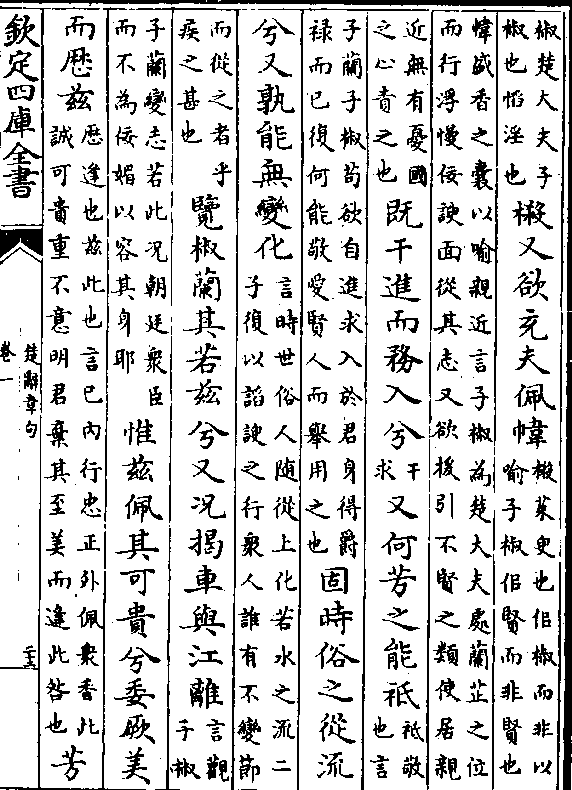 椒楚大夫子
椒也慆淫也
樧又欲充夫佩幃
樧茱萸也似椒而非以
喻子椒似賢而非賢也
幃盛香之囊以喻親近言子椒為楚大夫處蘭芷之位
而行浮慢佞諛面從其志又欲援引不賢之類使居親
近無有憂國
之心責之也
既干進而務入兮
干
求
又何芳之能祗
祗敬
也言
子蘭子椒苟欲自進求入於君身得爵
禄而已復何能敬愛賢人而舉用之也
固時俗之從流
兮又孰能無變化
言時世俗人随從上化若水之流二
子復以諂諛之行衆人誰有不變節
而從之者乎
疾之甚也
覽椒蘭其若兹兮又况揭車與江離
言觀
子椒
子蘭變志若此况朝廷衆臣
而不為佞媚以容其身耶
惟兹佩其可貴兮委厥美
而歷兹
歷逢也兹此也言已内行忠正外佩衆香此
誠可貴重不意明君棄其至美而逢此咎也
芳
欽定四庫全書
楚辭章句
卷一